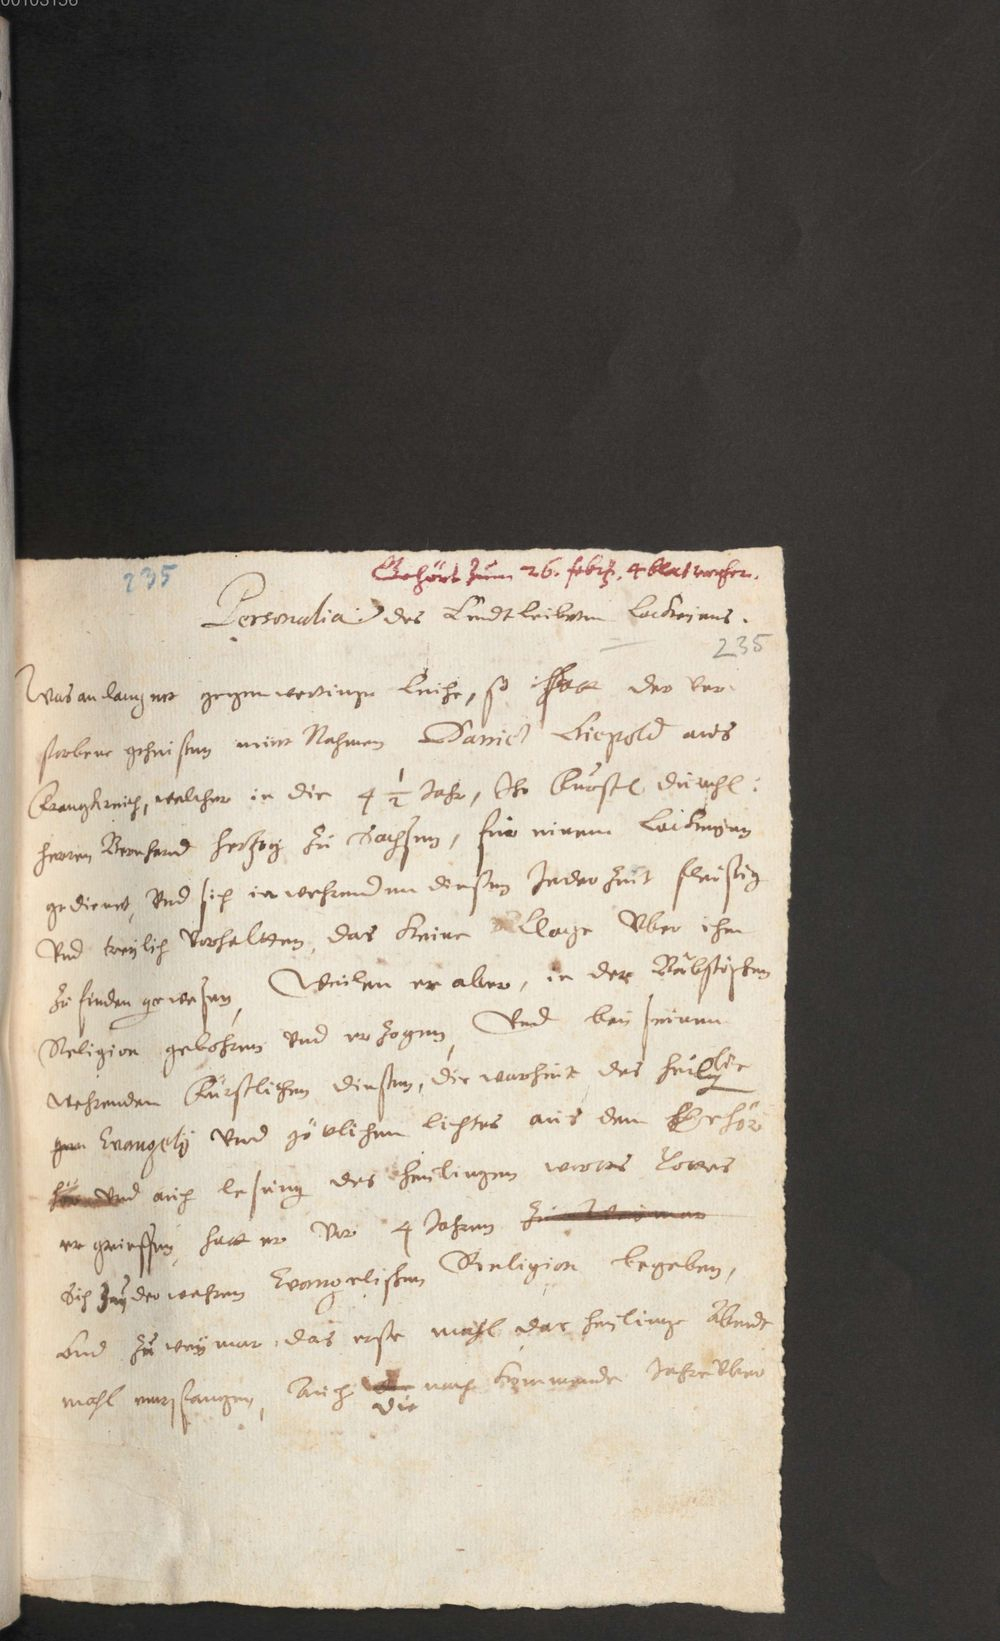 00103156
235
Gehört zum 26. febr. 4 blat vorher.
Personalia des Landtleibern Lackeians.
235
Was anlanget gegenwertinge Leiche, so hatt der ver-
storbene geheisen mitt Nahmen Daniel Liepold aus
Franckreich, welcher in die 4 1/2 Jahr, Ihr Fürstl. durchl:
herren Bernhard hertzog zu Sachsen, für einem Lackeyen
gedienet, Und sich in wehrendem diesten Jeder Zeit fleisig
Und treylich Vorhaltten, das keine Clage Uber ihn
zu finden gewesen, Weilen er aber, in der Bäbstischen
Religion gebohren Und erzogen, Und bey seinem
wehrenden Fürstlichen diesten, die warheit des heili
gen Evangely Und götlichen lichtes aus dem Gehör
Und auch lesung des heiligen wortes Gottes
ergrieffen, hatt er Vor 4 Jahren
Sich zu der wahren Evangelischen Religion begeben,
Und zu weymar das erste mahl das heilige Abendt
mahl empfangen, Auch die nach kommende Jahre Uber